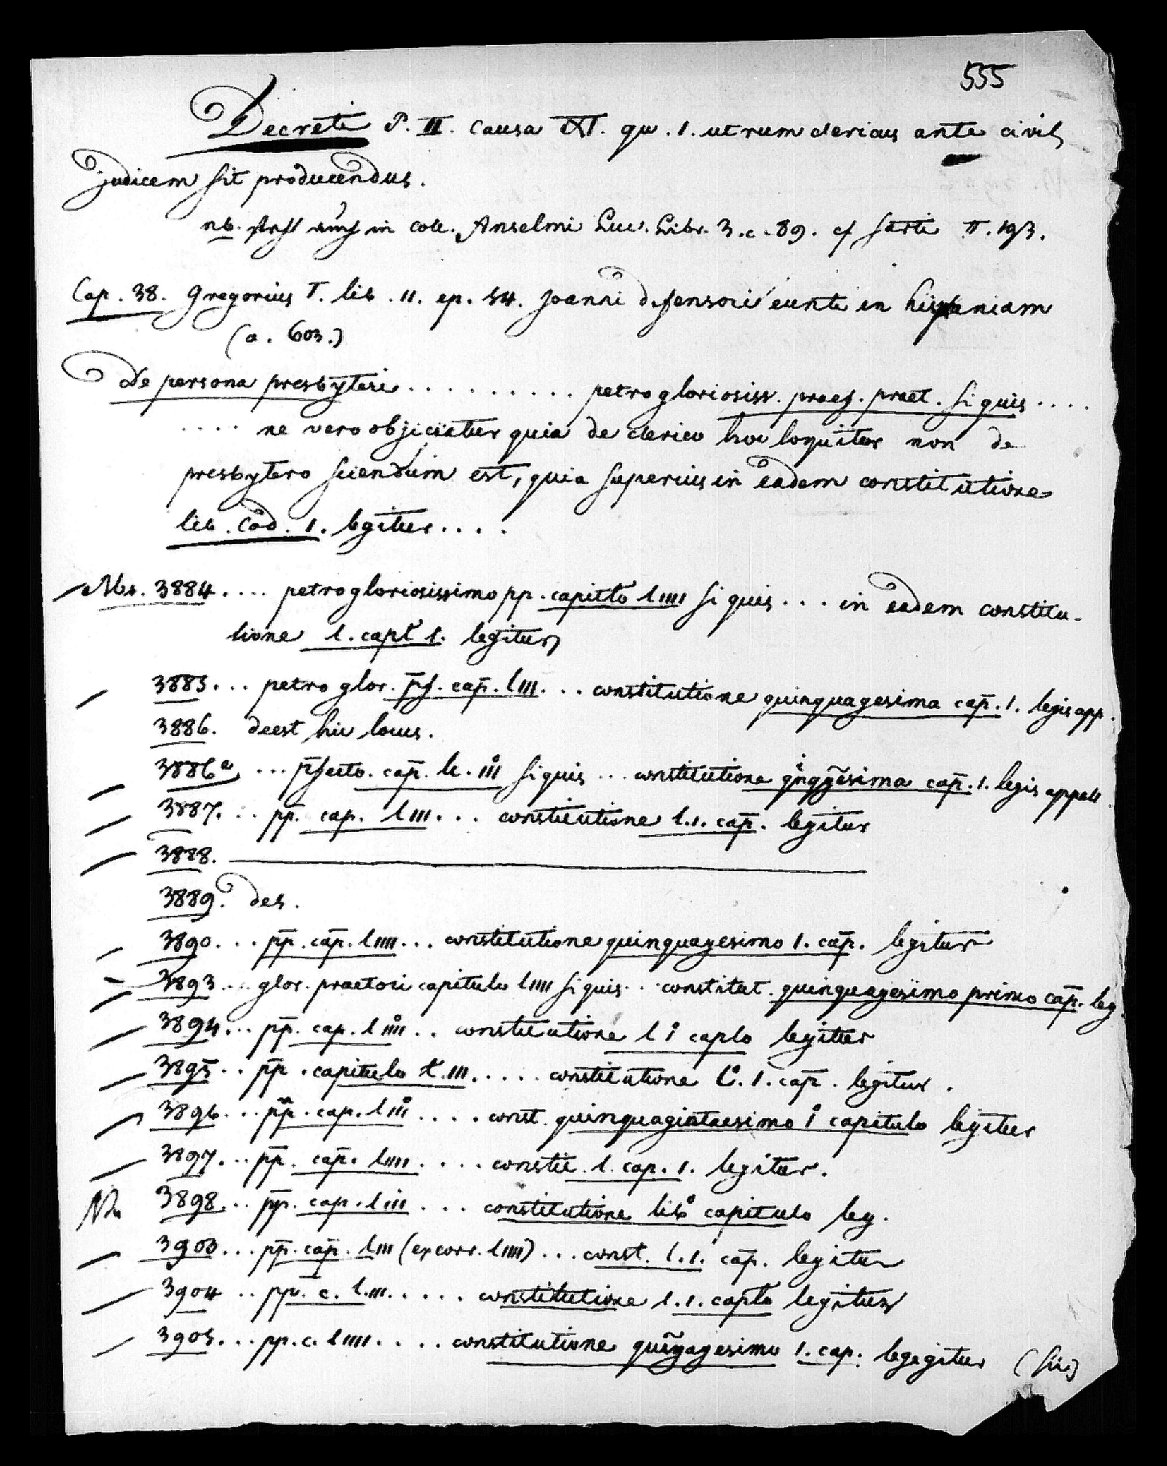 555
Decreti P. II. Causa XI. qu. 1. utrum clericus ante civil
judicem sit producendus.
nb. steht auch in coll. Anselmi Luc. Libr. 3. c. 89. cf Sarti II. 193.
Cap. 38. Gregorius I. lib. 11. ep. 54. Joanni defensori eunti in hispaniam
(a. 603.)
de persona presbyteri .......... petro gloriosiss. praef. praet. Si quis ....
.... ne vero objiciatur quia de clerico hoc loquitur non de
presbytero sciendum est, quia superius in eadem constitutione
lib. Cod. 1. legitur ....
Mss. 3884 .... petro gloriosissimo pp. capitło l IIII Si quis ... in eadem constitu-
tione l. capł 1. legitur
3885 ... petro glor. pf. cap. l III. ... constitutione quinquagesima cap. 1. legis app.
3886. deest hic locus.
3886a ... pfecto. cap. le. III Si quis ... constitutione qingqgesima cap. 1. legis appell
3887. ... pp. cap. l III ... constitutione l. 1. cap. legitur
3888.
3889. des.
3890. ... pp. cap. l IIII ... constitutione quinquagesimo 1. cap. legitur
3893 ... glor. praetori capitulo l IIII Si quis ... constitut. quinquagesimo primo cap. leg.
3894 ... pp. cap. l IIII .. constitutione l i caplo legitur
3895 .. pp. capitulo l. III. .... constitutione l. 1. cap. legitur.
3896 ... pp. cap. l III .... const. quinquagintaesimo i capitulo legitur
3897. ... pp. cap. l IIII .... constit. l. cap. 1. legitur.
3898 .. pp. cap. l III ... constitutione lib capitulo leg.
3903 ... pp. cap. l III (ex corr. l IIII) ... const. l. 1. cap. legitur
3904 .. pp. c. l. III. .... constitutione l. 1. capło legitur
3905. ... pp. c. l IIII .... constitutione quīgagesimo 1. cap. legegitur (sic)